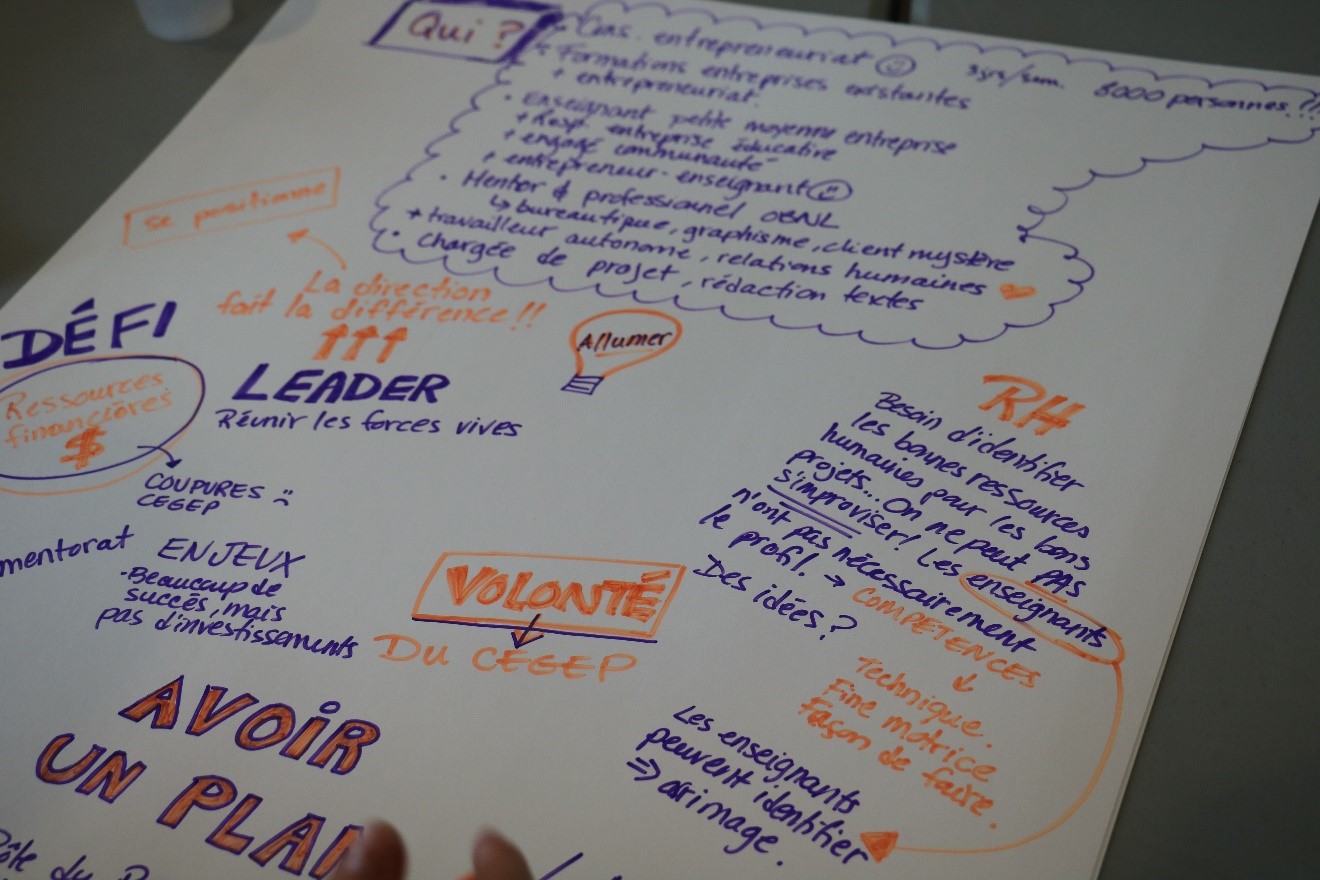 Qui ?
Cons. entrepreneuriat
3 jrs/sem. 8000 personnes !!!
Formations entreprises existantes
+ entrepreneuriat.
• Enseignant petite moyenne entreprise
+ Resp. entreprise éducative
+ engagé communauté
+ entrepreneur-enseignant
• Mentor & professionnel OBNL
↳ bureautique, graphisme, client mystère
+ travailleur autonome, relations humaines
• Chargée de projet, rédaction textes
se positionne
La direction
fait la différence !!
LEADER
Réunir les forces vives
Allumer
DÉFI
Ressources
financières
$
COUPURES
CEGEP
mentorat
ENJEUX
• Beaucoup de
succés, mais
pas d'investissements
VOLONTÉ
DU CEGEP
RH
Besoin d'identifier
les bonnes ressources
humaines pour les bons
projets... On ne peut PAS
s'improviser! Les enseignants
n'ont pas nécessairement
le profil. → COMPÉTENCES
Des idées?
Technique.
Fine motrice
Façon de faire.
Les enseignants
peuvent identifier
⇒ arrimage.
AVOIR
UN PLAN